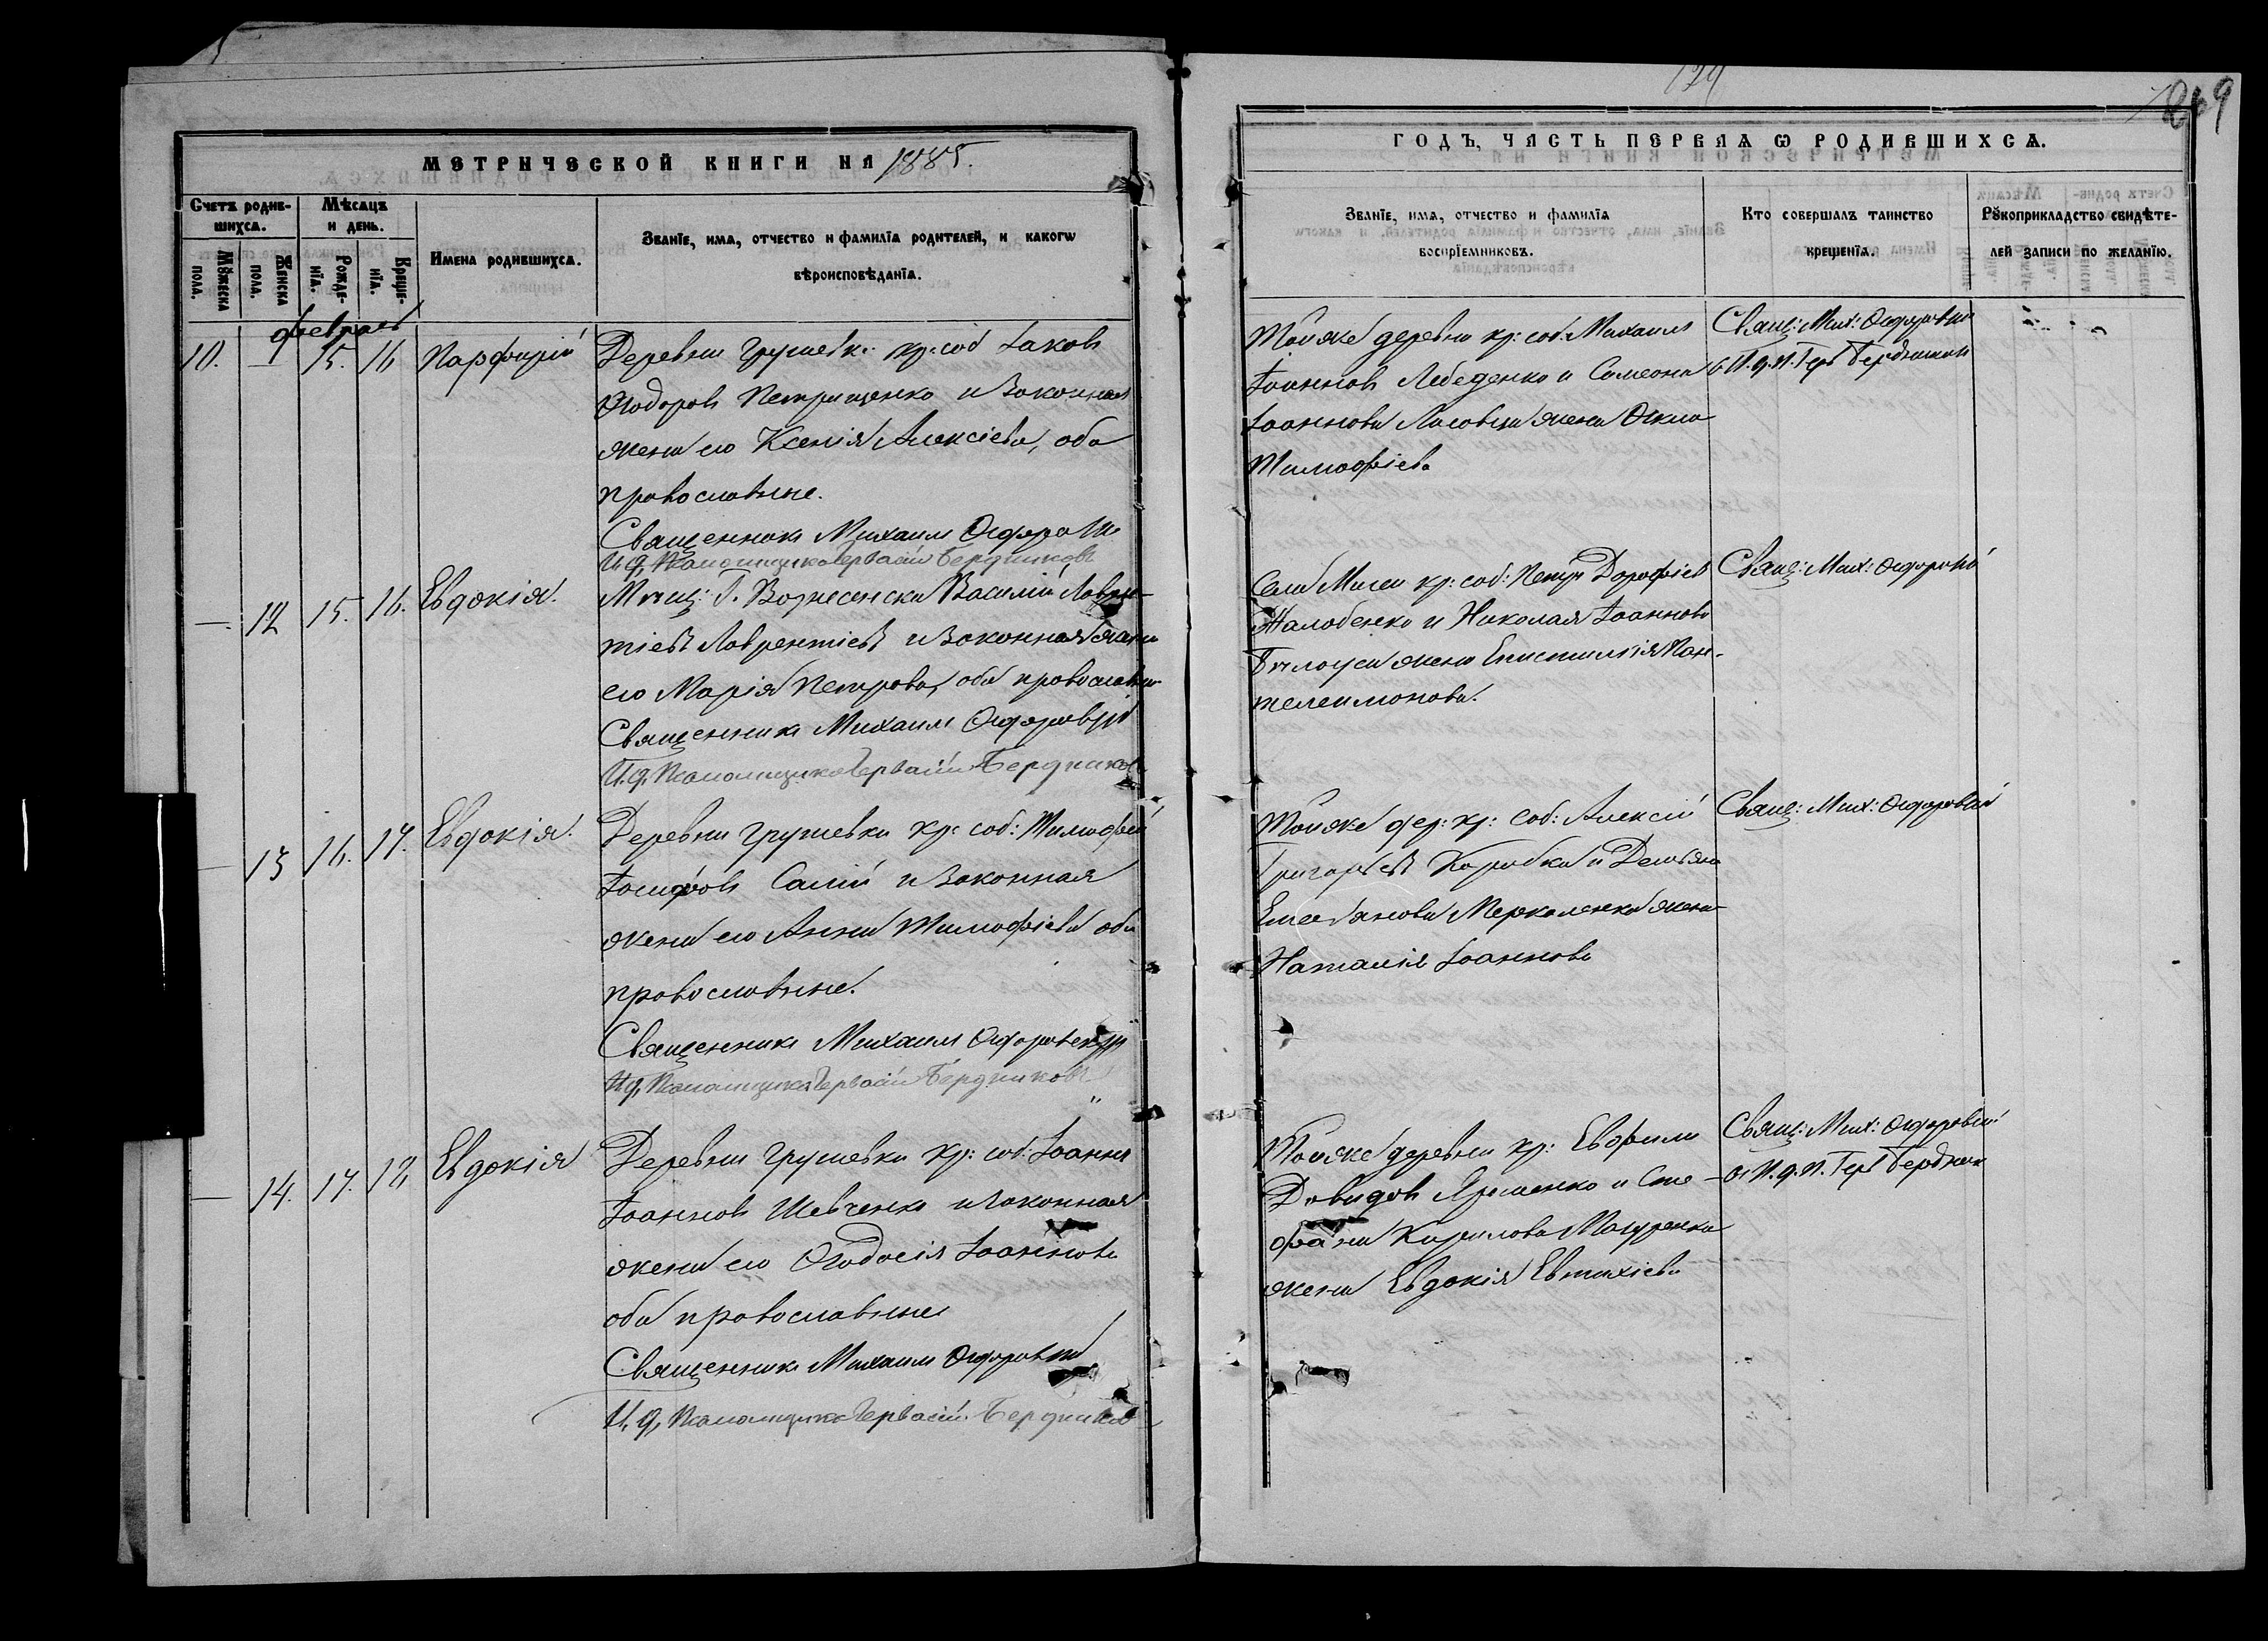 129
269
МЕТРИЧЕСКОЙ КНИГИ НА 1885.
ГОДЪ, ЧАСТЬ ПЕРВАЯ Ѡ РОДИВШИХСѦ.
Счетъ родив-
шихсѧ.
Мѣсѧцъ
и день.
Мꙋжеска
пола.
Женска
пола.
Рожде-
нїѧ.
Креще-
нїѧ.
Имена родившихсѧ.
Званїе, имѧ, отчество и фамилїѧ родителей, и какогѡ
вѣроисповѣданїѧ.
Званїе, имѧ, отчество и фамилїѧ
воспрїемниковъ.
Кто совершалъ таинство
крещенїѧ.
Рꙋкоприкладство свидѣте-
лей записи по желанїю.
Февраль
10. — 15. 16 Парфирій
Деревни Грушевки кр: соб Іаковъ
Ѳеодоровъ Петрищенко и законная
жена его Ксенія Алексіева, оба
православные.
Священникъ Михаилъ
И. д. Псаломщика Гервасій Бердниковъ
Тойже деревни кр: соб: Михаилъ
Іоанновъ Лебеденко и Симеона
Іоаннова жена Ѳекла
Тимофіева
Свящ: Мих:
с И. д. П. Герв Бердником
— 12 15. 16. Евдокія.
Мѣщ: Г. Вознесенска Василій Лаврен-
тіевъ Лаврентіевъ и законная жена
его Марія Петрова, оба православные
Священникъ Михаилъ
И. д. Псаломщика Гервасій Бердниковъ
Села Мисси кр: соб: Петръ Дорофіевъ
Жалобенко и Николая Іоаннова
Бѣлоуса жена Епистимія Пан-
телеимонова.
Свящ: Мих:
— 13 16. 17. Евдокія.
Деревни Грушевки кр: соб: Тимофей
Іосифовъ Салій и законная
жена его Анна Тимофіева оба
православные.
Священникъ Михаилъ
И. д. Псаломщика Гервасій Бердниковъ
Тойже дер: кр: соб: Алексій
Григорьевъ Коробка и Демьяна
Емельянова жена
Наталія Іоаннова
Свящ: Мих:
— 14. 17. 18, Евдокія
Деревни Грушевки кр: соб: Іоаннъ
Іоанновъ Шевченко и законная
жена его Ѳеодосія Іоаннова
оба православные
Священникъ Михаилъ
И. д. Псаломщика Гервасій Бердниковъ
Тойже деревни кр: Евфимъ
Давидовъ Ярошенко и Сте-
фана Кирилова Мазуренка
жена Евдокія Евтихіева
Свящ: Мих:
съ И. д. П. Герв Бердник